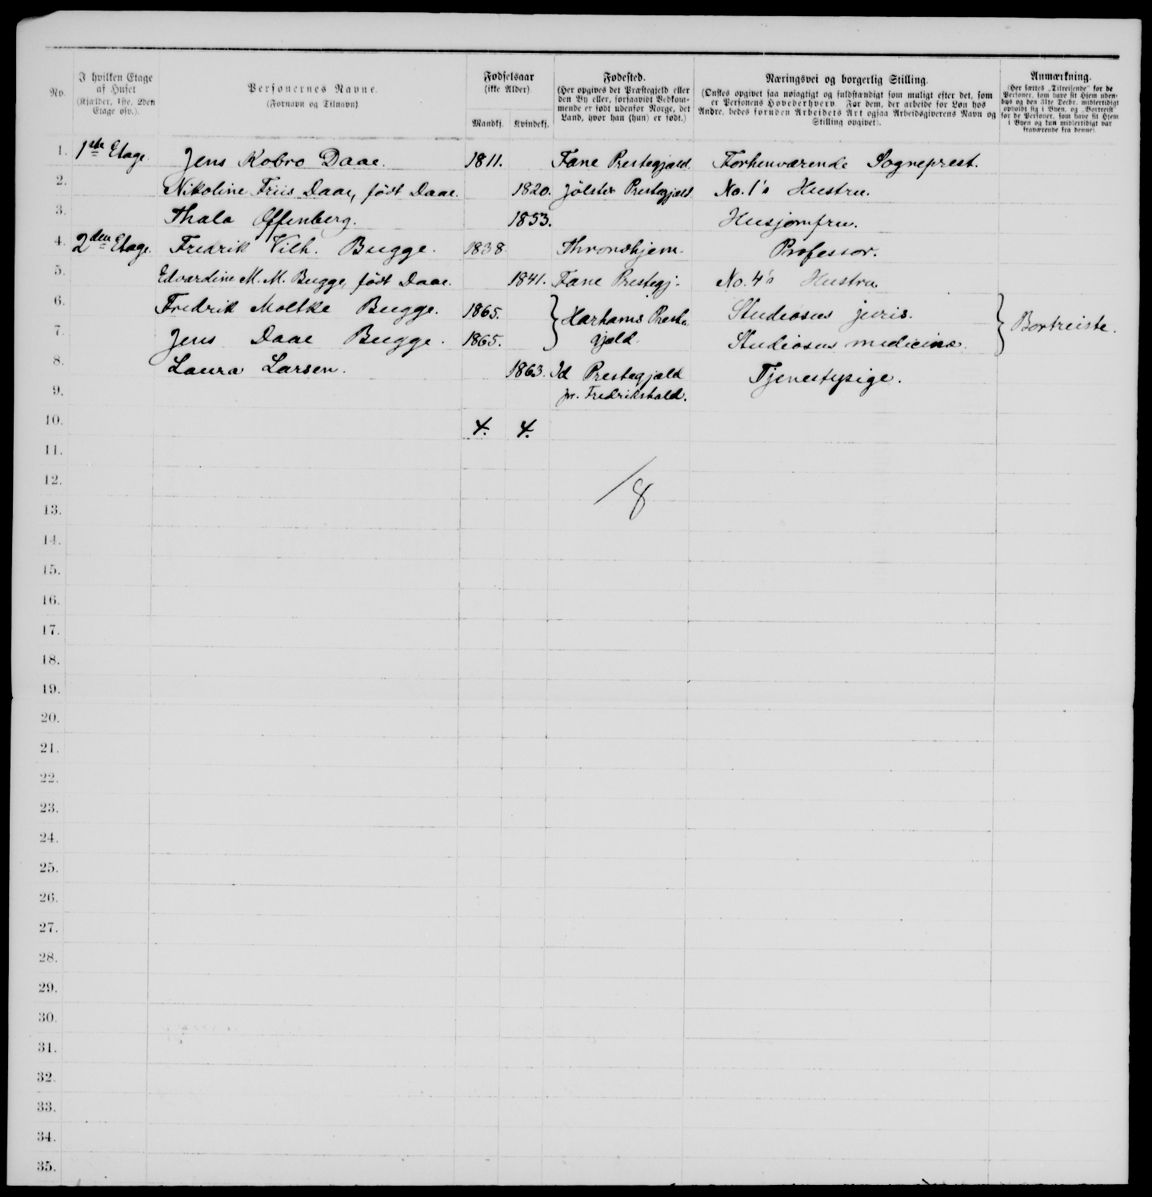 No.
I hvilken Etage
af Huset
(Kjælder, 1ste, 2den
Etage osv.).
Personernes Navne.
(Fornavn og Tilnavn)
Fødselsaar
(ikke Alder).
Mandkj. Kvindekj.
Fødested.
(Her opgives det Præstegjeld eller
den By eller, forsaavidt Vedkom-
mende er født udenfor Norge, det
Land, hvor han (hun) er født.)
Næringsvei og borgerlig Stilling.
(Ønskes opgivet saa nøiagtigt og fuldstændigt som muligt efter det, som
er Personens Hovederhverv. For dem, der arbeide for Løn hos
Andre, bedes foruden Arbeidets Art ogsaa Arbeidsgiverens Navn og
Stilling opgivet).
Anmærkning.
(Her sættes "Tilreisende" for de
Personer, som have sit Hjem uden-
bys og den 31te Decbr. midlertidigt
opholdt sig i Byen, og "Bortreist"
for de Personer, som have sit Hjem
i Byen og kun midlertidigt var
fraværende fra denne)
1. 1ste Etage. Jens Kobro Daae. 1811. Fane Prestegjæld. Forhenværende Sogneprest.
2. Nikoline Friis Daae, født Daae. 1820. Jølster Prestegjæld No. 1's Hustru.
3. Thala Offenberg. 1853. Husjomfru.
4. 2den Etage. Fredrik Vilh. Bugge. 1838. Throndhjem. Professor.
5. Edvardine M. M. Bugge, født Daae. 1841. Fane Prestegj. No. 4's Hustru
6. Fredrik Moltke Bugge. 1865. Harhams Preste Studiosus juris.
7. Jens Daae Bugge. 1865. gjæld. Studiosus medicinæ. Bortreiste.
8. Laura Larsen. 1863. Id Prestegjæld Tjenestepige.
9. pr. Fredrikshald.
10. 4. 4.
11.
12.
/8
13.
14.
15.
16.
17.
18.
19.
20.
21.
22.
23.
24.
25.
26.
27.
28.
29.
30.
31.
32.
33.
34.
35.